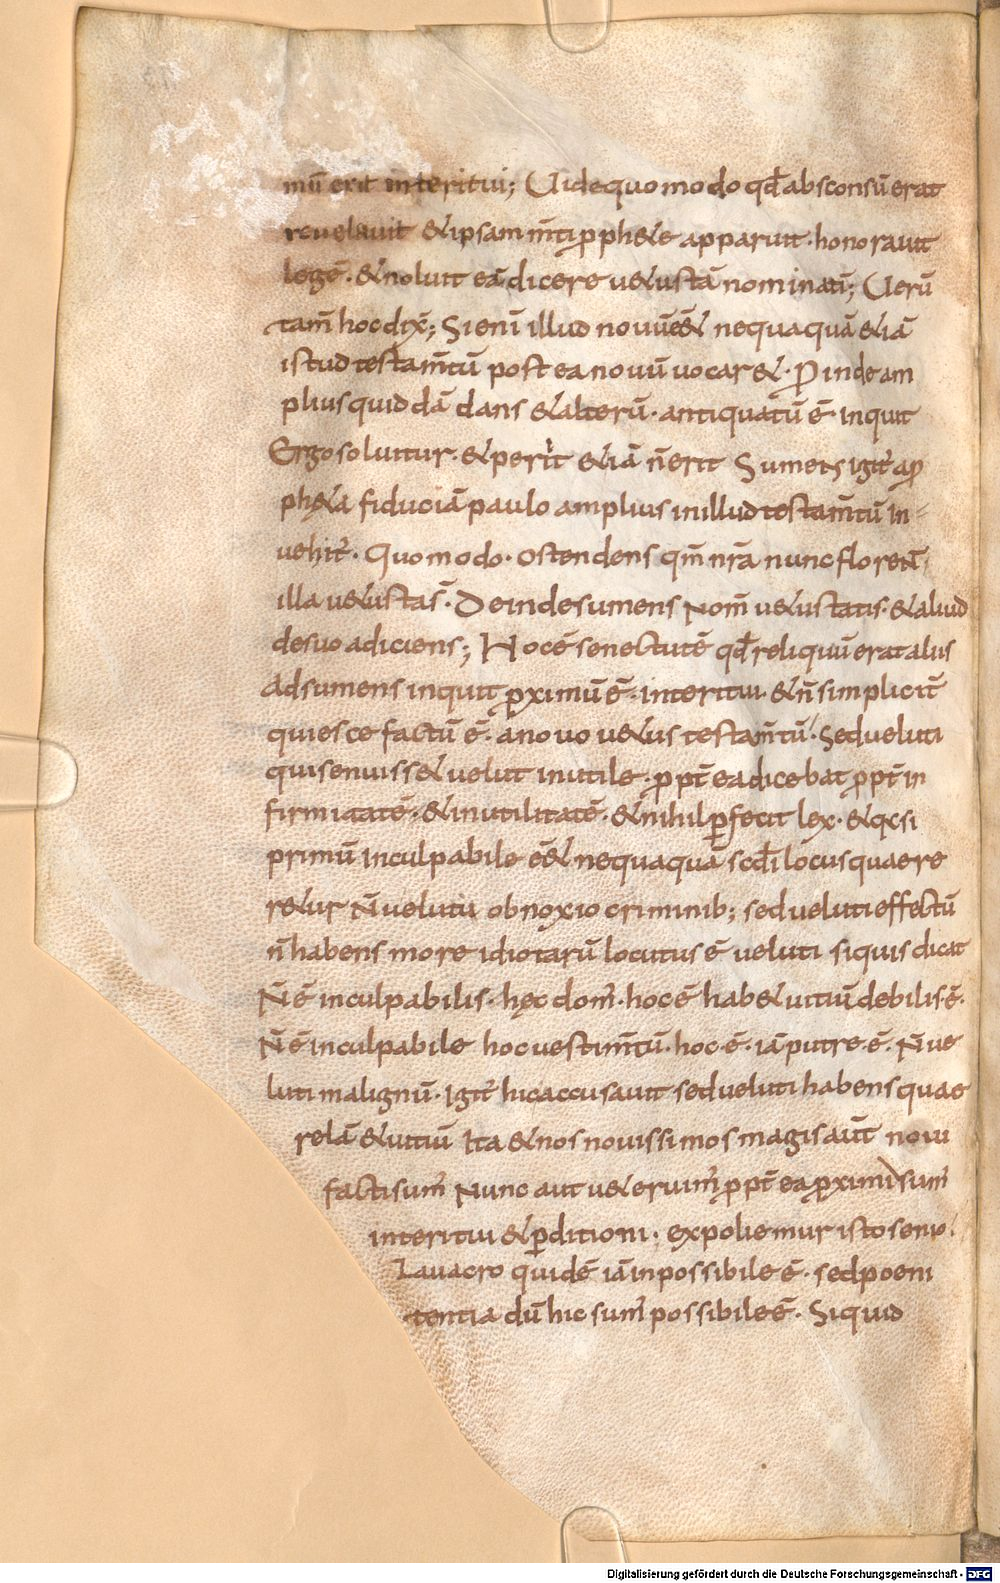 mū erit interitui; Uide quomodo qđ absconsū erat
reuelauit & ipsam m̄ti pph&e apparuit · honorauit
legē · & noluit eā dicere u&ustā nominatī; Uerū
tam̄ hoc dix̄; Si enī illud nouū eē& nequaquā &iā
istud testam̄tū post ea nouū uocar& · Proinde am
plius quiddā dans & alterū · antiquatū ē · inquit
Ergo soluitur · & perit &iā n̄ erit Sumens igit̄ a p
ph&a fiduciā paulo amplius in illud testam̄tū in
uehit̄ · Quomodo · ostendens qm̄ nr̄a nunc floren̄
illa u&ustas̄ · Deinde sumens nom̄ u&ustatis · & aliud
de suo adiciens; Hoc ē senectutē qđ reliquū erat alus
Adsumens inquit pximū ē · interitui · & n̄ simplicit̄
quiesce factū ē · a nouo u&us testam̄tū · sed ueluti
qui senuiss& uelut inutile · ppt̄ ea dicebat ppt̄ in
firmitatē · & inutilitatē · & nihil pfecit lex · & qcsi
primū inculpabile eē& nequaquā scđi locus quaere
r&ur N̄ ueluti obnoxio criminib; sed ueluti effectū
n̄ habens more idiotarū locutus ē ueluti si quis dicat
N̄ ē inculpabilis · hęc dom̄ · hoc ē hab& uitiū debilis ē ·
N̄ ē inculpabile hoc uestim̄tū · hoc · ē · iā putre · ē · N̄ ue
luti malignū · Igit̄ hic accusauit sed ueluti habens quae
relā & uitiū Ita & nos nouissimos magis aūt noui
facti sum̄ Nunc aut u&eruim̄ ppt̄ ea pximi sum̄
interitui & pditioni · expoliemur isto senio ·
Lauacro quidē iā inpossibile ē · sed poeni
tentia dū hic sum̄ possibile ē · Siquid
Digitalisierung gefördert durch die Deutsche Forschungsgemeinschaft - DFG